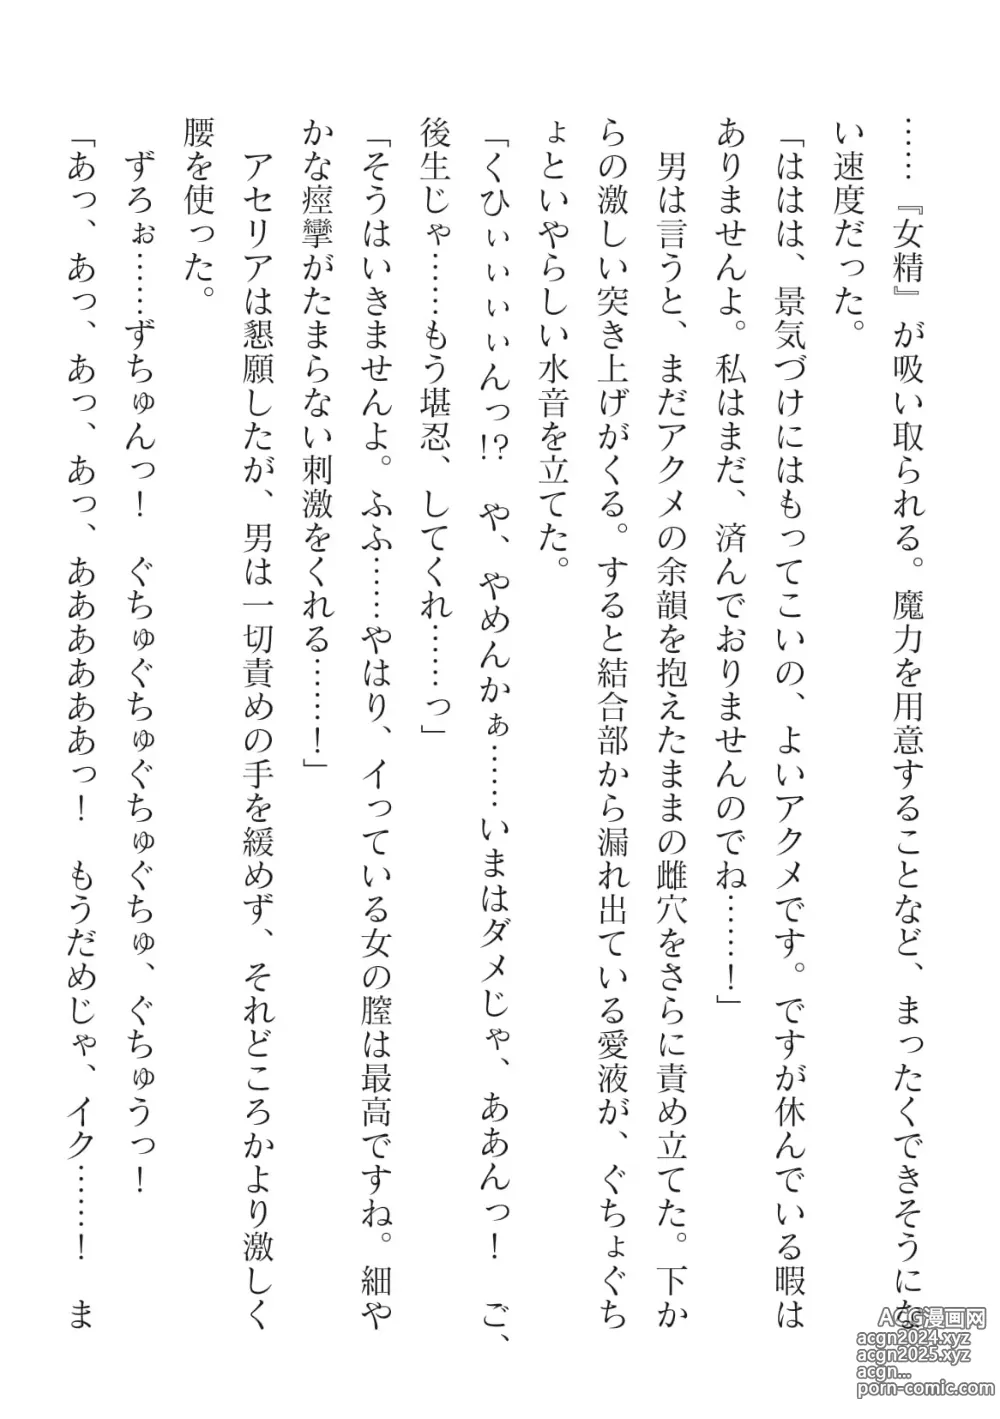 ……『女精』が吸い取られる。魔力を用意することなど、まったくできそうにな
い速度だった。
「ははは、景気づけにはもってこいの、よいアクメです。ですが休んでいる暇は
ありませんよ。私はまだ、済んでおりませんのでね……！」
　男は言うと、まだアクメの余韻を抱えたままの雌穴をさらに責め立てた。下か
らの激しい突き上げがくる。すると結合部から漏れ出ている愛液が、ぐちょぐち
ょといやらしい水音を立てた。
「くひぃぃぃぃんっ!?　や、やめんかぁ……いまはダメじゃ、ああんっ！　ご、
後生じゃ……もう堪忍、してくれ……っ」
「そうはいきませんよ。ふふ……やはり、イっている女の膣は最高ですね。細や
かな痙攣がたまらない刺激をくれる……！」
　アセリアは懇願したが、男は一切責めの手を緩めず、それどころかより激しく
腰を使った。
　ずろぉ……ずちゅんっ！　ぐちゅぐちゅぐちゅぐちゅ、ぐちゅうっ！
「あっ、あっ、あっ、あっ、ああああああっ！　もうだめじゃ、イク……！　ま
ACG漫画网
acgn2024.xyz
acgn2025.xyz
acgn...
porn-comic.com